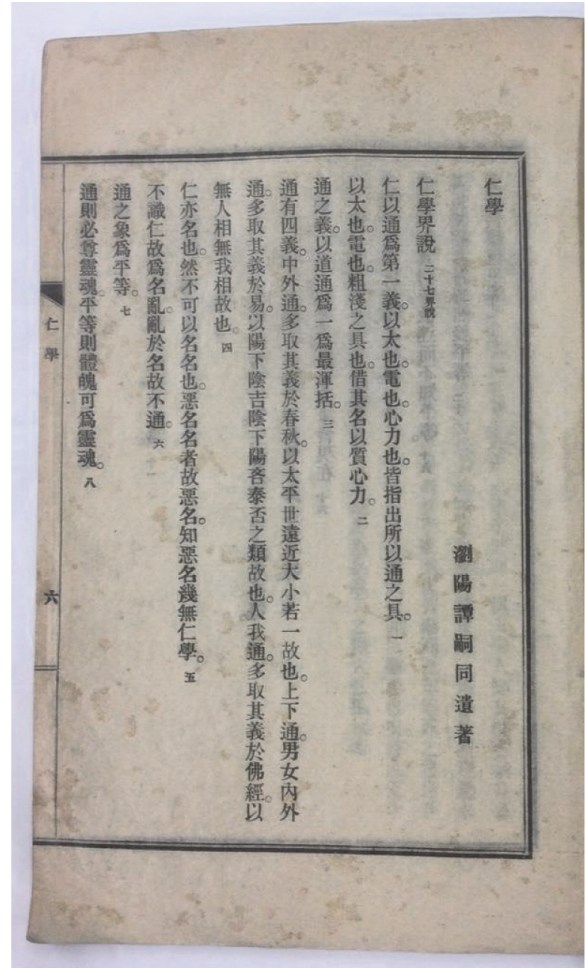 仁學
瀏陽譚嗣同遺著
仁學界說 二十七界說
仁以通爲第一義以太也電也心力也皆指出所以通之具。一
以太也電也粗淺之具也借其名以質心力。二
通之義以道通爲一爲最渾括。三
通有四義。中外通多取其義於春秋以太平世遠近大小若一故也。上下通男女內外
通。多取其義於易。以陽下陰吉陰下陽吝泰否之類故也。人我通。多取其義於佛經。以
無人相無我相故也。四
仁亦名也。然不可以名名也。惡名名者故惡名。知惡名幾無仁學。五
不識仁故爲名亂。亂於名故不通。六
通之象爲平等。七
通則必尊靈魂。平等則體魄可爲靈魂。八
仁學
六